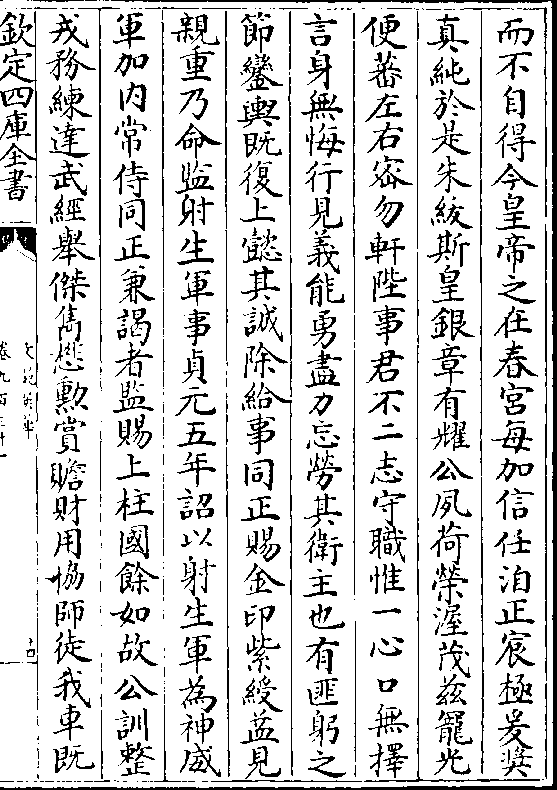 而不自得今皇帝之在春宮每加信任洎正宸極爰奬
真純於是朱紱斯皇銀章有燿公夙荷榮渥茂茲寵光
便蕃左右宻勿軒陛事君不二志守職惟一心口無擇
言身無悔行見義能勇盡力忘勞其衛主也有匪躬之
節鑾輿既復上懿其誠除給事同正賜金印紫綬葢見
親重乃命監射生軍事貞元五年詔以射生軍為神威
軍加内常侍同正兼謁者監賜上柱國餘如故公訓整
戎務練達武經舉傑雋懋勲賞贍財用協師徒我車既
欽定四庫全書
文苑英華